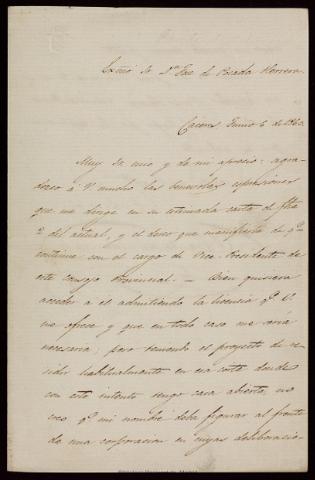 Exmo Sr Dn José de Posada Herrera.
Caceres Junio 6 de 1860.
Muy Sr mio y de mi aprecio: agra-
dezco á V. mucho las benevolas espresiones
que me dirige en su estimada carta de fha
2 del actual, y el deseo que manifiesta de qe.
continue con el cargo de Vice-Presidente de
este Consejo Provincial. — Bien quisiera
acceder a el admitiendo la licencia qe. V.
me ofrece y que en todo caso me seria
necesaria; pero teniendo el proyecto de re-
sidir habitualmente en esa corte donde
con este intento tengo casa abierta, no
creo qe. mi nombre debe figurar al frente
de una corporacion en cuyas deliberacio-